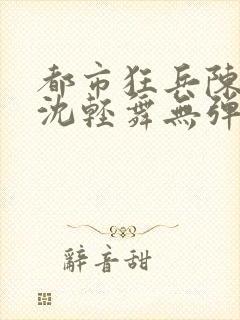 都市狂兵陳
沈輕舞無彈
辭音甜